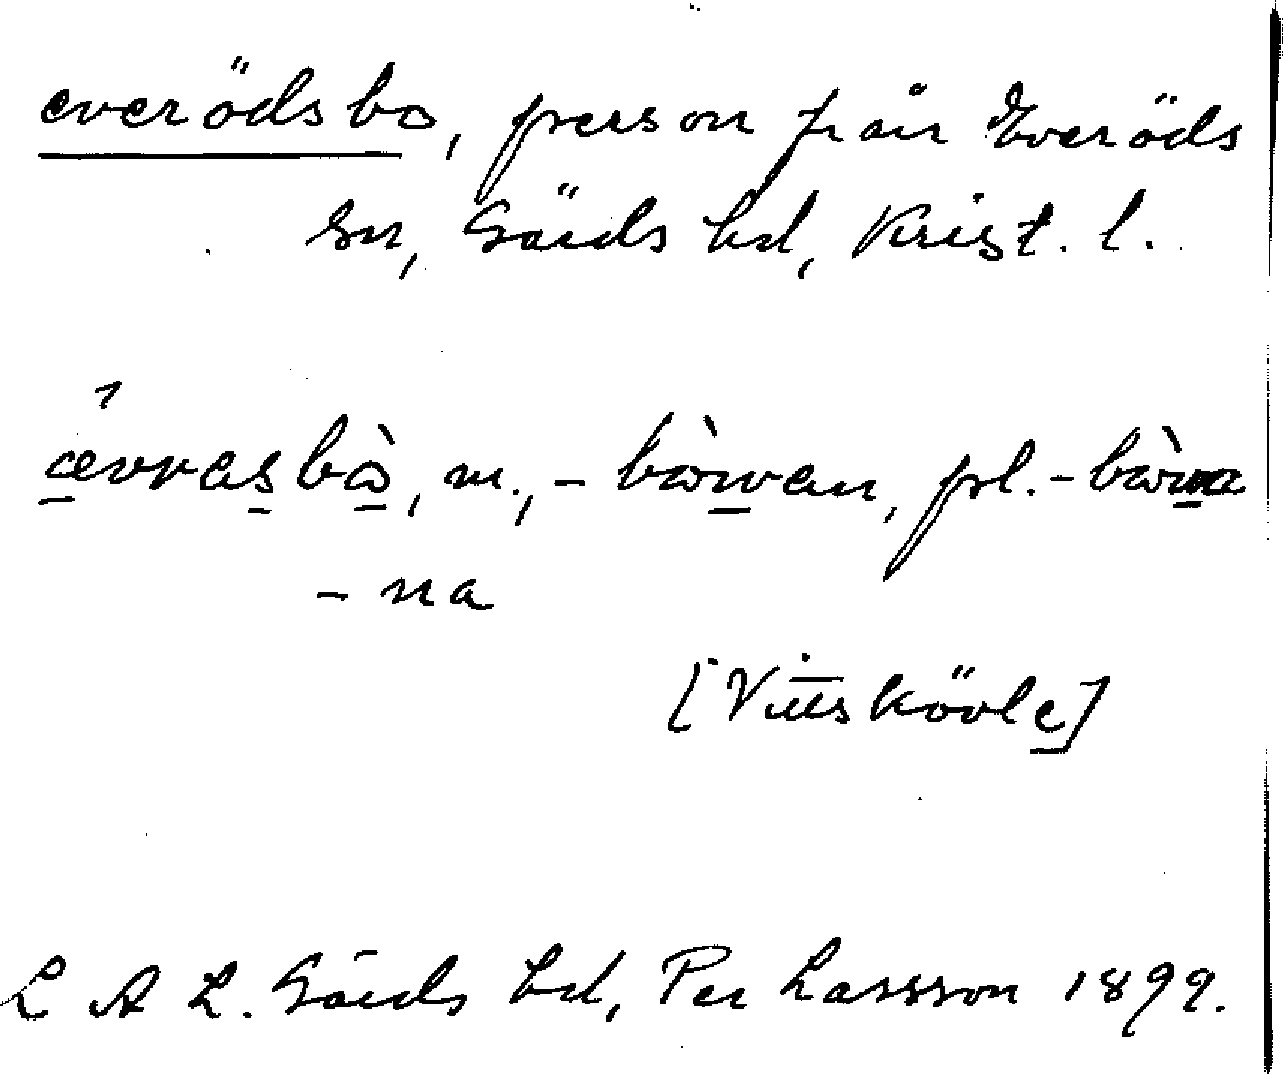 everödsbo, person från Everöds
sn, Gärds hd, Krist. l.
ævrasbò, m., -bòwan, pl. -bòwa
-na
[Vittskövle]
L A L. Gärds hd, Per Larsson 1899.